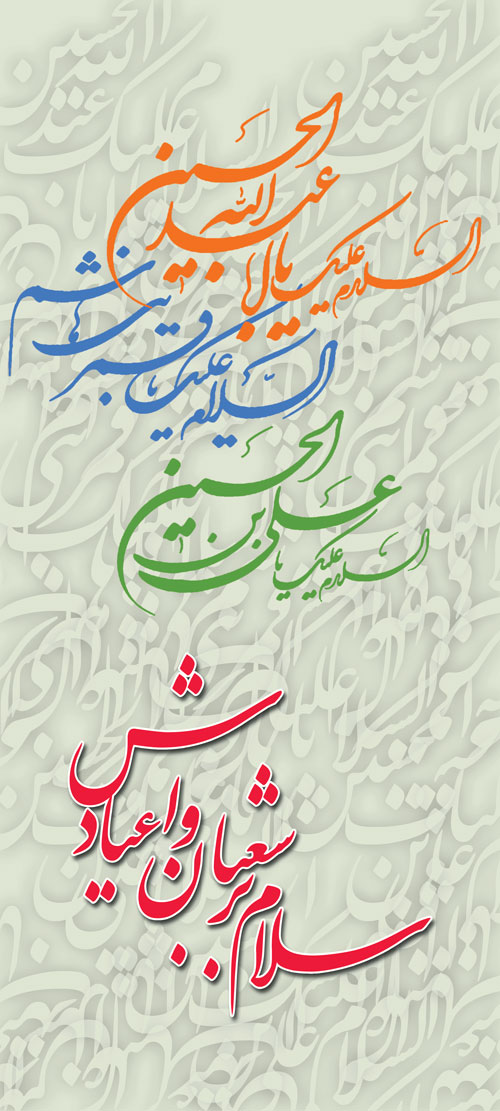 السلام علیک یا ابا عبد الله الحسین
السلام علیک یا قمر بنی هاشم
السلام علیک یا علی بن الحسین
سلام بر شعبان و اعیادش